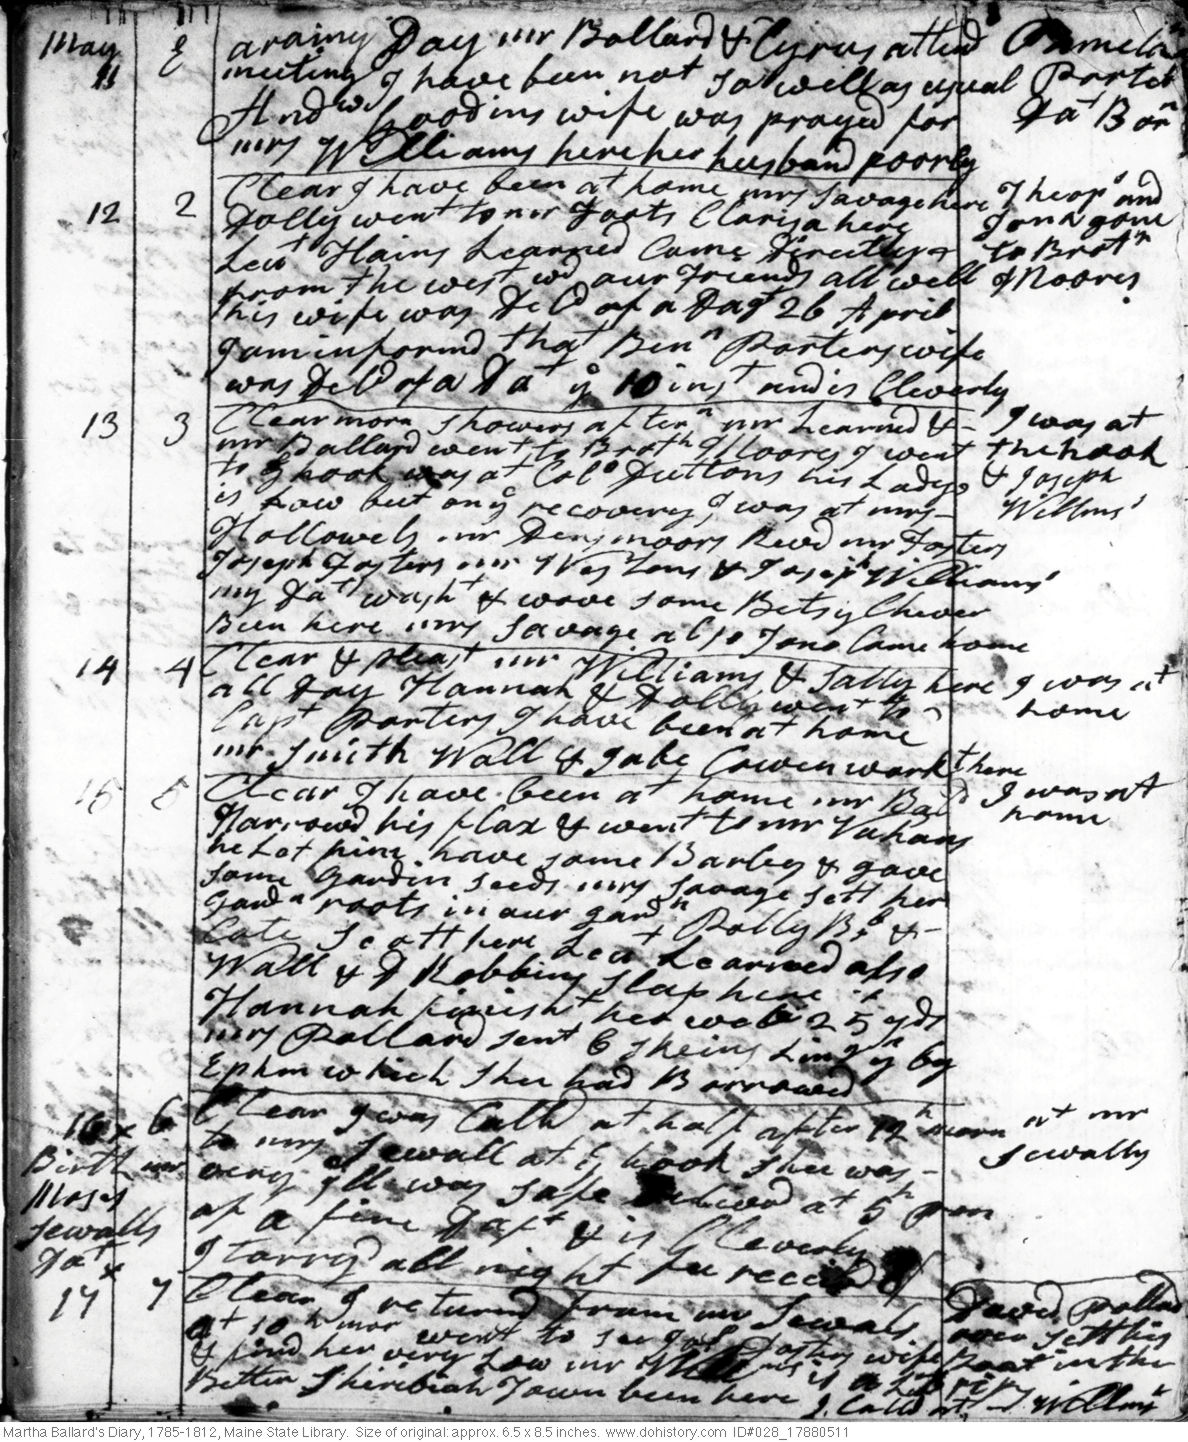 May
11
E
a rainy Day mr Ballard & Cyrus attend
meeting I have been not so well as usual
Andws Goodins wife was prayed for
mrs Williams here her husband poorly
Pamela
Porter
Dat Born
12
2
Clear I have been at home mrs Savage here
Dolly went to mr Foots Clarisa here
Leut Hains Learned Came Directly
from the west wd our Friends all well
his wife was DelD of a Dagt 26 April
I am informd that Benn Porters wife
was DelD of a Dat ye 10 inst and is Cleverly
Theops and
Jona gone
to Brotr
Moores
13
3
Clear morn showers aftern mr Learned &
mr Ballard went to Broth Moores I went
to ye hook was at Colo Duttons his Lady
is Low but on ye recovery I was at mrs
Hollowels mr Densmoors Revd mr Fosters
Joseph Fosters mr Westons & Joseph Williams'
my Dats washt & wove some Betsy Chever
Been here mrs Savage also Jona Came home
I was at
the hook
& Joseph
Willms'
14
4
Clear & pleast mr Williams & Sally here
all Day Hannah & Dolly went to
Capt Porters I have been at home
mr Smith Wall & Jabe Cowen workt here
I was at
home
15
5
Clear I have been at home mr Bald
Harrowd his flax & went to mr Vahans
he Let him have some Barley & gave
some garden seeds mrs Savage sett her
gardn roots in our gardn Polly Bt &
Cate Scott here Leut Learned also
Wall & D Robbins Sleap here
Hannah finisht her web 25 yds
mrs Pollard sent 6 skeins Ling yn by
Ephm which shee had Borrowed
I was at
home
16 x 6
Birth mr
Moses
Sewalls
Dat x
Clear I was Calld at half after 12 h morn
to mrs Sewall at ye hook shee was
very ill was safe Delivrd at 5 h pm
of a fine Dagt & is Cleverly
I tarryd all night
at mr
Sewalls
17
7
Clear I returnd from mr Sewals
at 10 h mor went to see Jos Fosters wife
& find her very Low mr Williams is a Little
Better Sheribiah Town been here
David Pollard
over Sett his
Boat in the
I Calld at J Willms